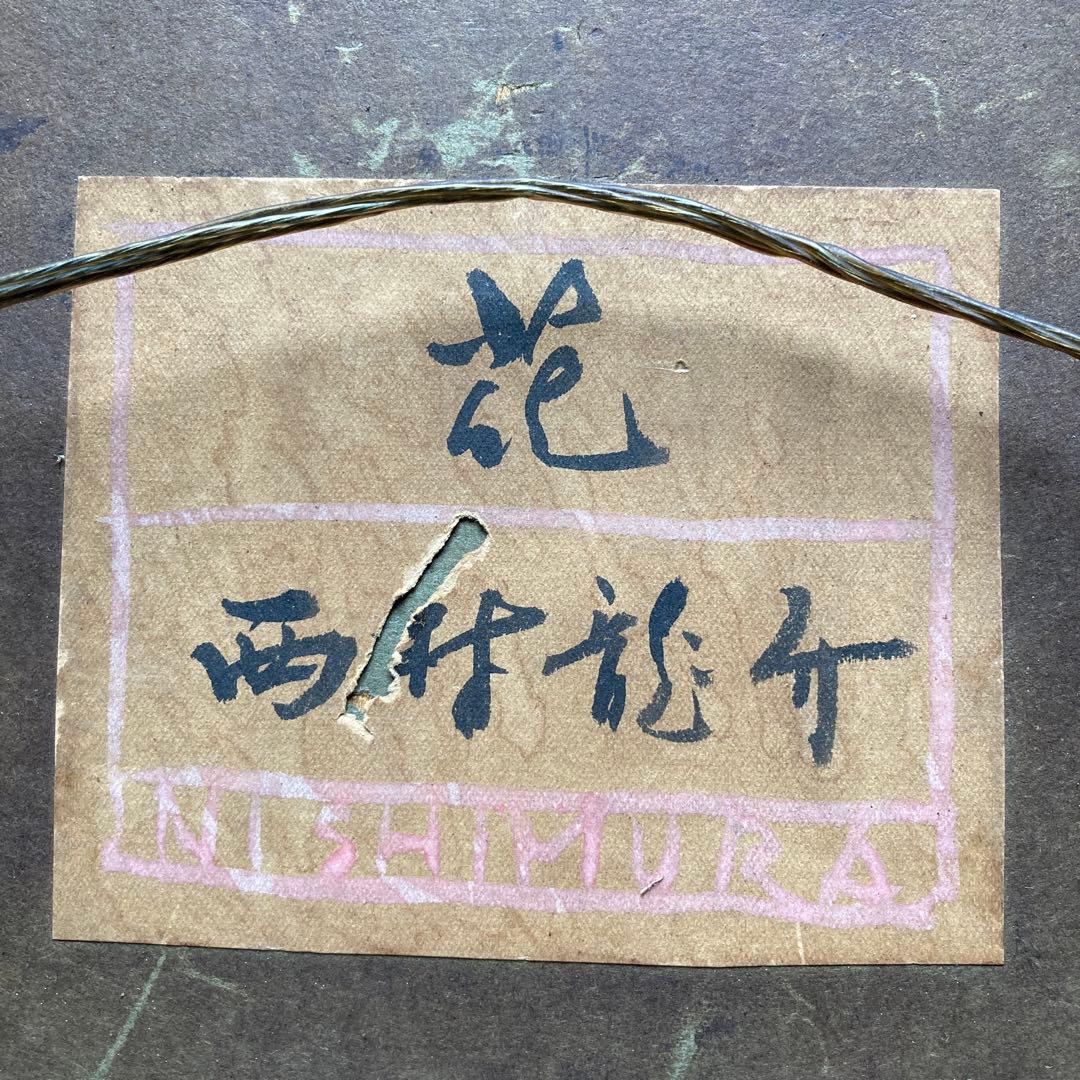 花
西村龍介
NISHIMURA